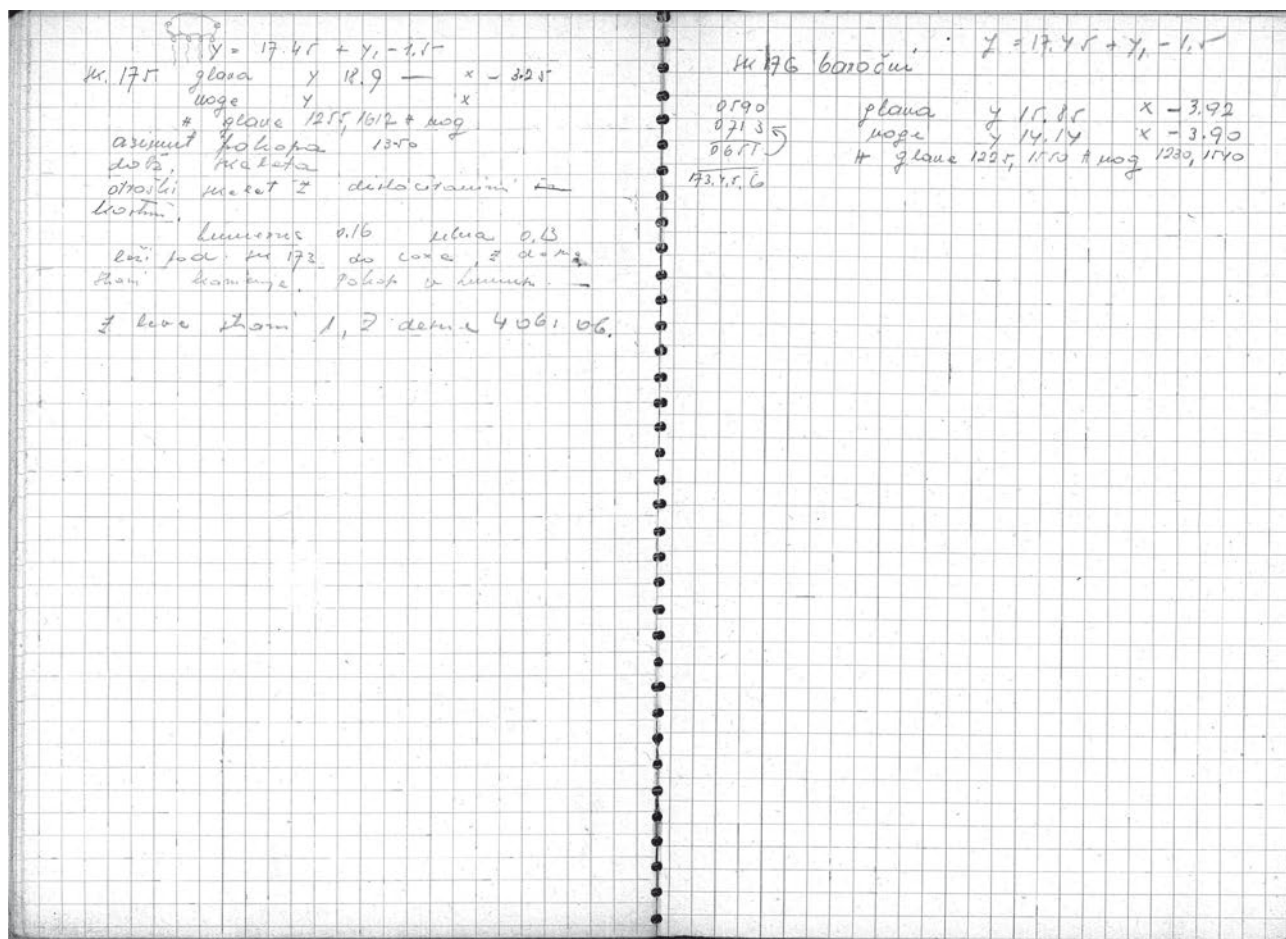 y = 17.45 + y, - 1.5
sk. 175 glava y 18.9 — x - 3.25
noge y x
# glave 1255, 1612 # nog
azimut pokopa 1350
dolž. skeleta
otroški skelet z dislociranimi
kostmi.
humerus 0.16 ulna 0,13
leži pod sk 173 do coxe, z desne
strani kamenje. Pokop v humus. —
Z leve strani 1, 2 desne 4
y = 17.45 + y, - 1.5
sk 176 baročni
0590 glava y 15.85 x - 3.92
0713 noge y 14.14 x - 3.90
0655 # glave 1225, 1550 # nog 1230, 1540
173.4.5.6